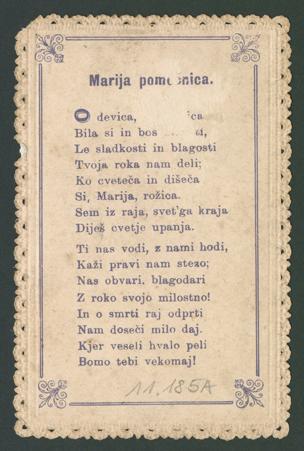 Marija pomočnica.
O devica,
Bila si in bos
Le sladkosti in blagosti
Tvoja roka nam deli;
Ko cveteča in dišeča
Si, Marija, rožica.
Sem iz raja, svet'ga kraja
Diješ cvetje upanja.
Ti nas vodi, z nami hodi,
Kaži pravi nam stezo;
Nas obvari, blagodari
Z roko svojo milostno!
In o smrti raj odprti
Nam doseči milo daj.
Kjer veseli hvalo peli
Bomo tebi vekomaj!
11.185A